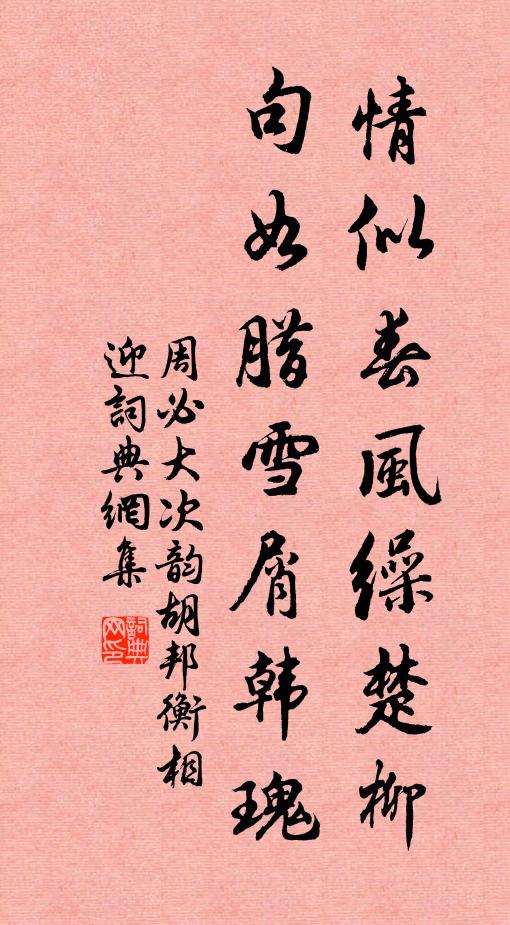 情似春風繰楚柳
句如腊雪屑韩瑰
周必大次韵胡邦衡相
迎詞典網集
詞典網印